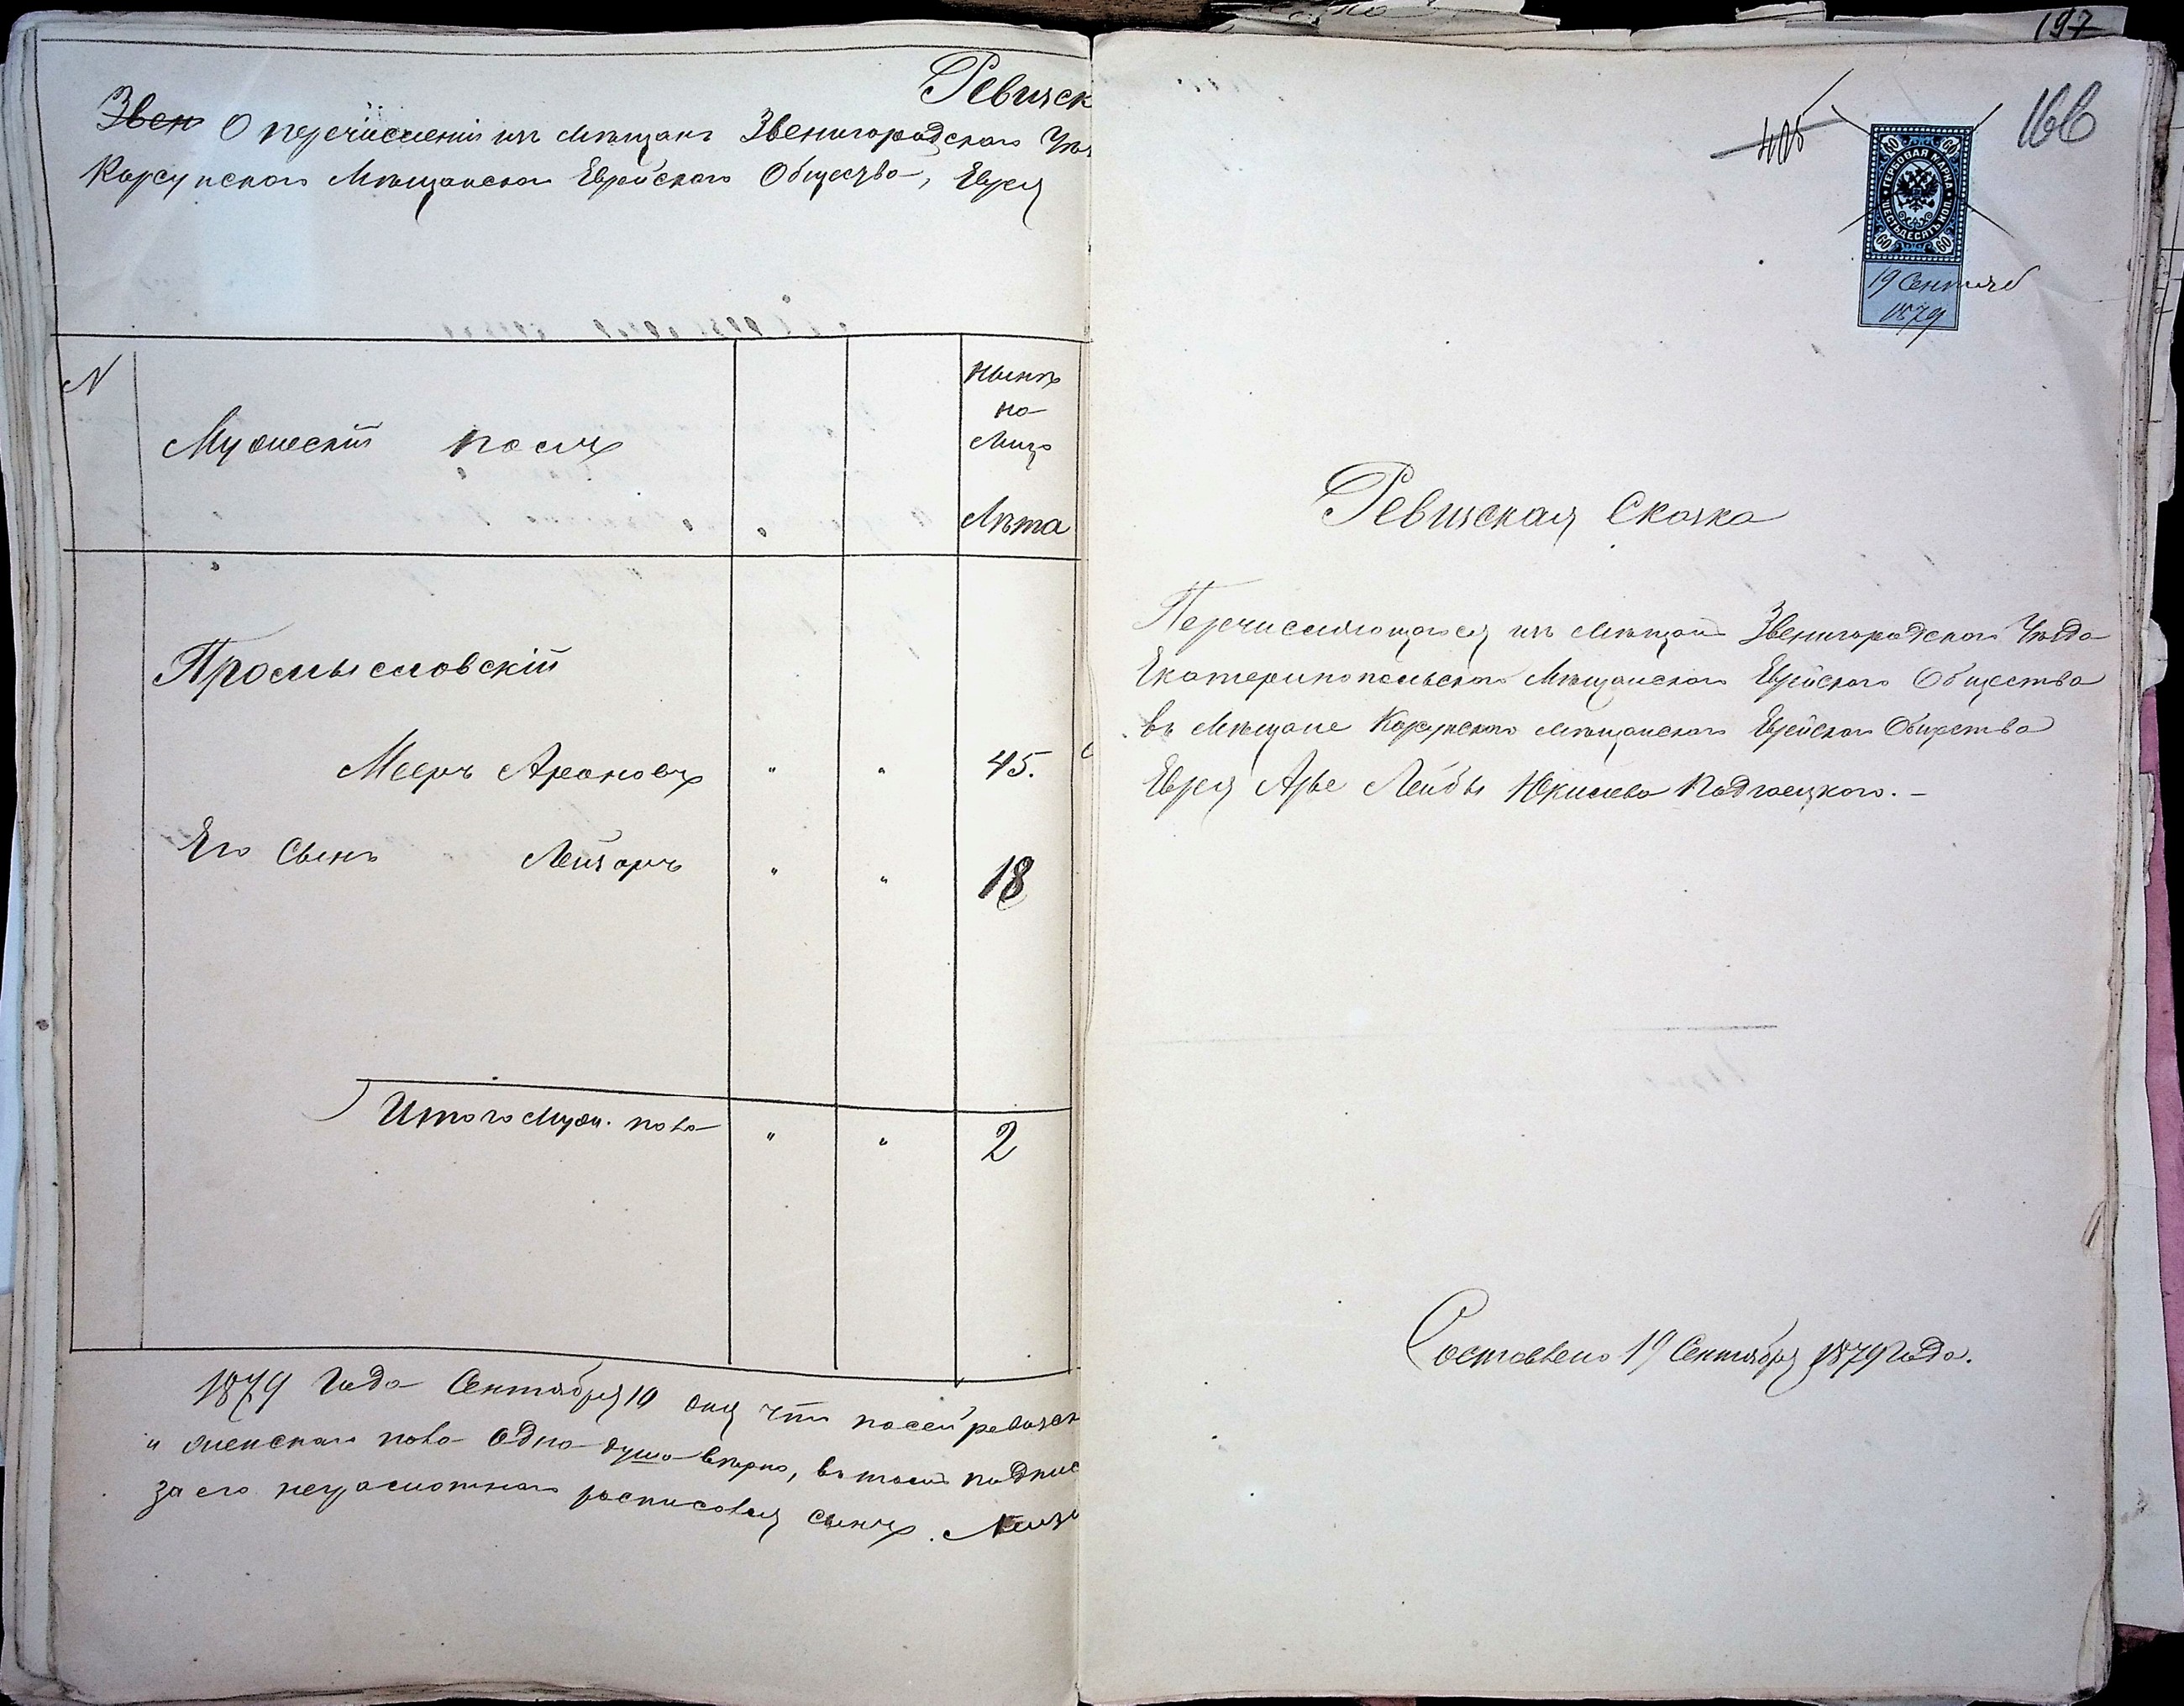 Ревизск
Звен О перечислении изъ мѣщанъ Звенигородскаго Уѣз
Корсунскаго Мѣщанскаго Еврейского Общества, Еврея
N
Мужескій полъ
нынѣ
на
лицо
Лѣта
Промысловскій
Мееръ Ароновъ " " 45.
Его Сынъ Лейзоръ " " 18
Итого Муж. пола " " 2
1879 Года Сентября 10 дня что посей ревизск
и женскаго пола одна душа вѣрно, въ томъ подпис
за его неграмотнаго росписовался сынъ. Лейзо
197
166
60 60
ГЕРБОВАЯ МАРКА
ШЕСТЬДЕСЯТЪ КОП.
60 60
19 Сентяб
1879
Ревизская Сказка
Перечисляющагося изъ мѣщанъ Звенигородскаго Уѣзда
Екатеринопольскаго Мѣщанскаго Еврейскаго Общества
въ Мѣщане Корсунскаго мѣщанскаго Еврейскаго Общества
Еврея Арье Лейбы Юкилева Подгаецкого. –
Составлено 19 Сентября 1879 Года.